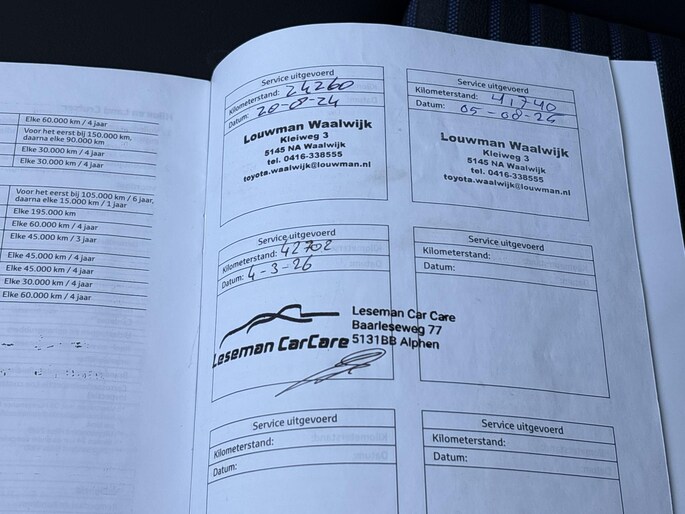 Elke 60.000 km / 4 jaar
Voor het eerst bij 150.000 km,
daarna elke 90.000 km
Elke 30.000 km / 4 jaar
Elke 30.000 km / 4 jaar
Voor het eerst bij 105.000 km / 6 jaar,
daarna elke 15.000 km / 1 jaar
Elke 195.000 km
Elke 60.000 km / 4 jaar
Elke 45.000 km / 3 jaar
Elke 45.000 km / 4 jaar
Elke 45.000 km / 4 jaar
Elke 30.000 km / 4 jaar
Elke 60.000 km / 4 jaar
Service uitgevoerd
Kilometerstand: 24260
Datum: 20-08-24
Louwman Waalwijk
Kleiweg 3
5145 NA Waalwijk
tel. 0416-338555
toyota.waalwijk@louwman.nl
Service uitgevoerd
Kilometerstand: 41740
Datum: 05-08-
Louwman Waalwijk
Kleiweg 3
5145 NA Waalwijk
tel. 0416-338555
toyota.waalwijk@louwman.nl
Service uitgevoerd
Kilometerstand: 42702
Datum: 4-3-26
Leseman CarCare
Leseman Car Care
Baarleseweg 77
5131BB Alphen
Service uitgevoerd
Kilometerstand:
Datum:
Service uitgevoerd
Kilometerstand:
Datum:
Service uitgevoerd
Kilometerstand:
Datum: